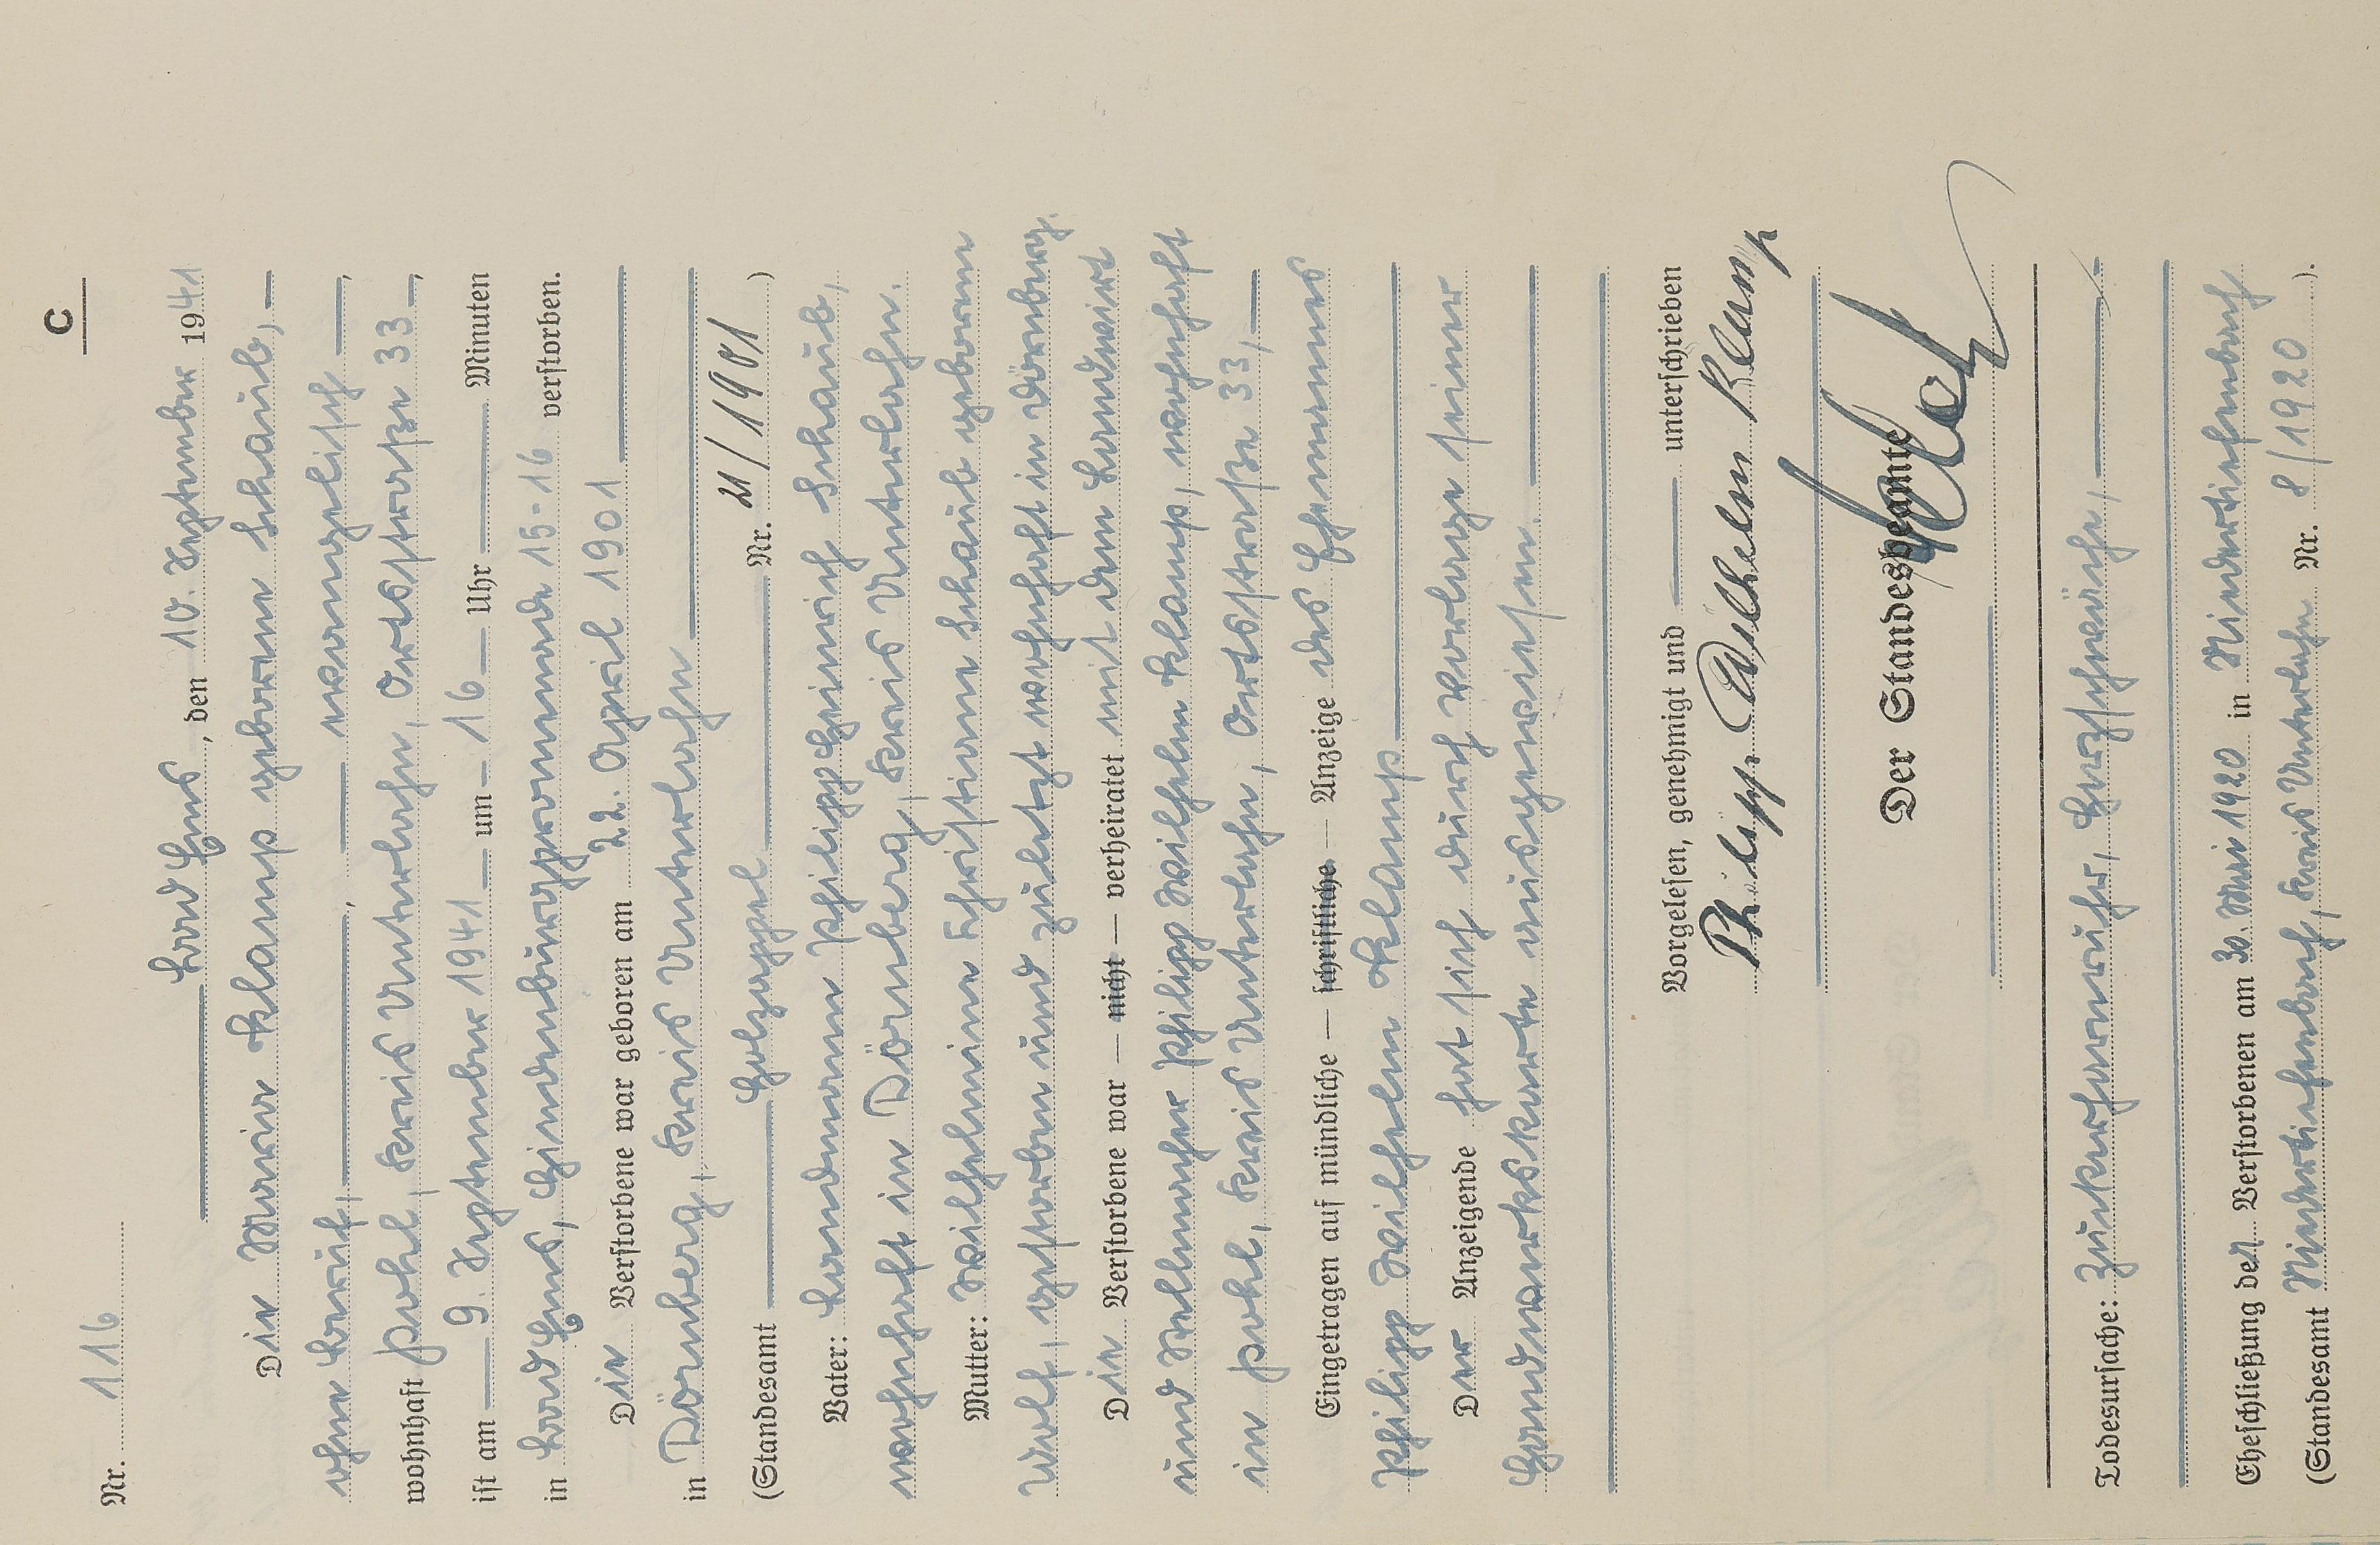 C
Nr. 116
Bad Ems, den 10. September 1941
Die Maria Klamp geborene Schaub, —
ohne Beruf, —, — evangelisch —,
wohnhaft Pohl, Kreis Unterlahn, Ortsstraße 33 —,
ist am — 9. September 1941 — um — 16 — Uhr — Minuten
in Bad Ems, Hindenburgpromenade 15-16 verstorben.
Die Verstorbene war geboren am 22. April 1901
in Dörnberg, Kreis Unterlahn
(Standesamt Holzappel Nr. 21/1901)
Vater: Landmann Philipp Heinrich Schaub,
wohnhaft in Dörnberg, Kreis Unterlahn.
Mutter: Wilhelmine Christiane Schaub geborene
Wolf, gestorben und zuletzt wohnhaft in Dörnberg.
Die Verstorbene war — nicht — verheiratet mit dem Landwirt
und Wellmacher Philipp Wilhelm Klamp, wohnhaft
in Pohl, Kreis Unterlahn, Ortsstraße 33, —
Eingetragen auf mündliche — schriftliche — Anzeige des Ehemannes
Philipp Wilhelm Klamp
Der Anzeigende hat sich durch Vorlage seiner
Handwerkskarte ausgewiesen.
Vorgelesen, genehmigt und — unterschrieben
Philipp Wilhelm Klamp
Der Standesbeamte
Todesursache: Zuckerharnruhr, Herzschwäche, —
Eheschließung der Verstorbenen am 30. Mai 1920 in Niedertiefenbach
(Standesamt Niedertiefenbach, Kreis Unterlahn Nr. 8/1920).